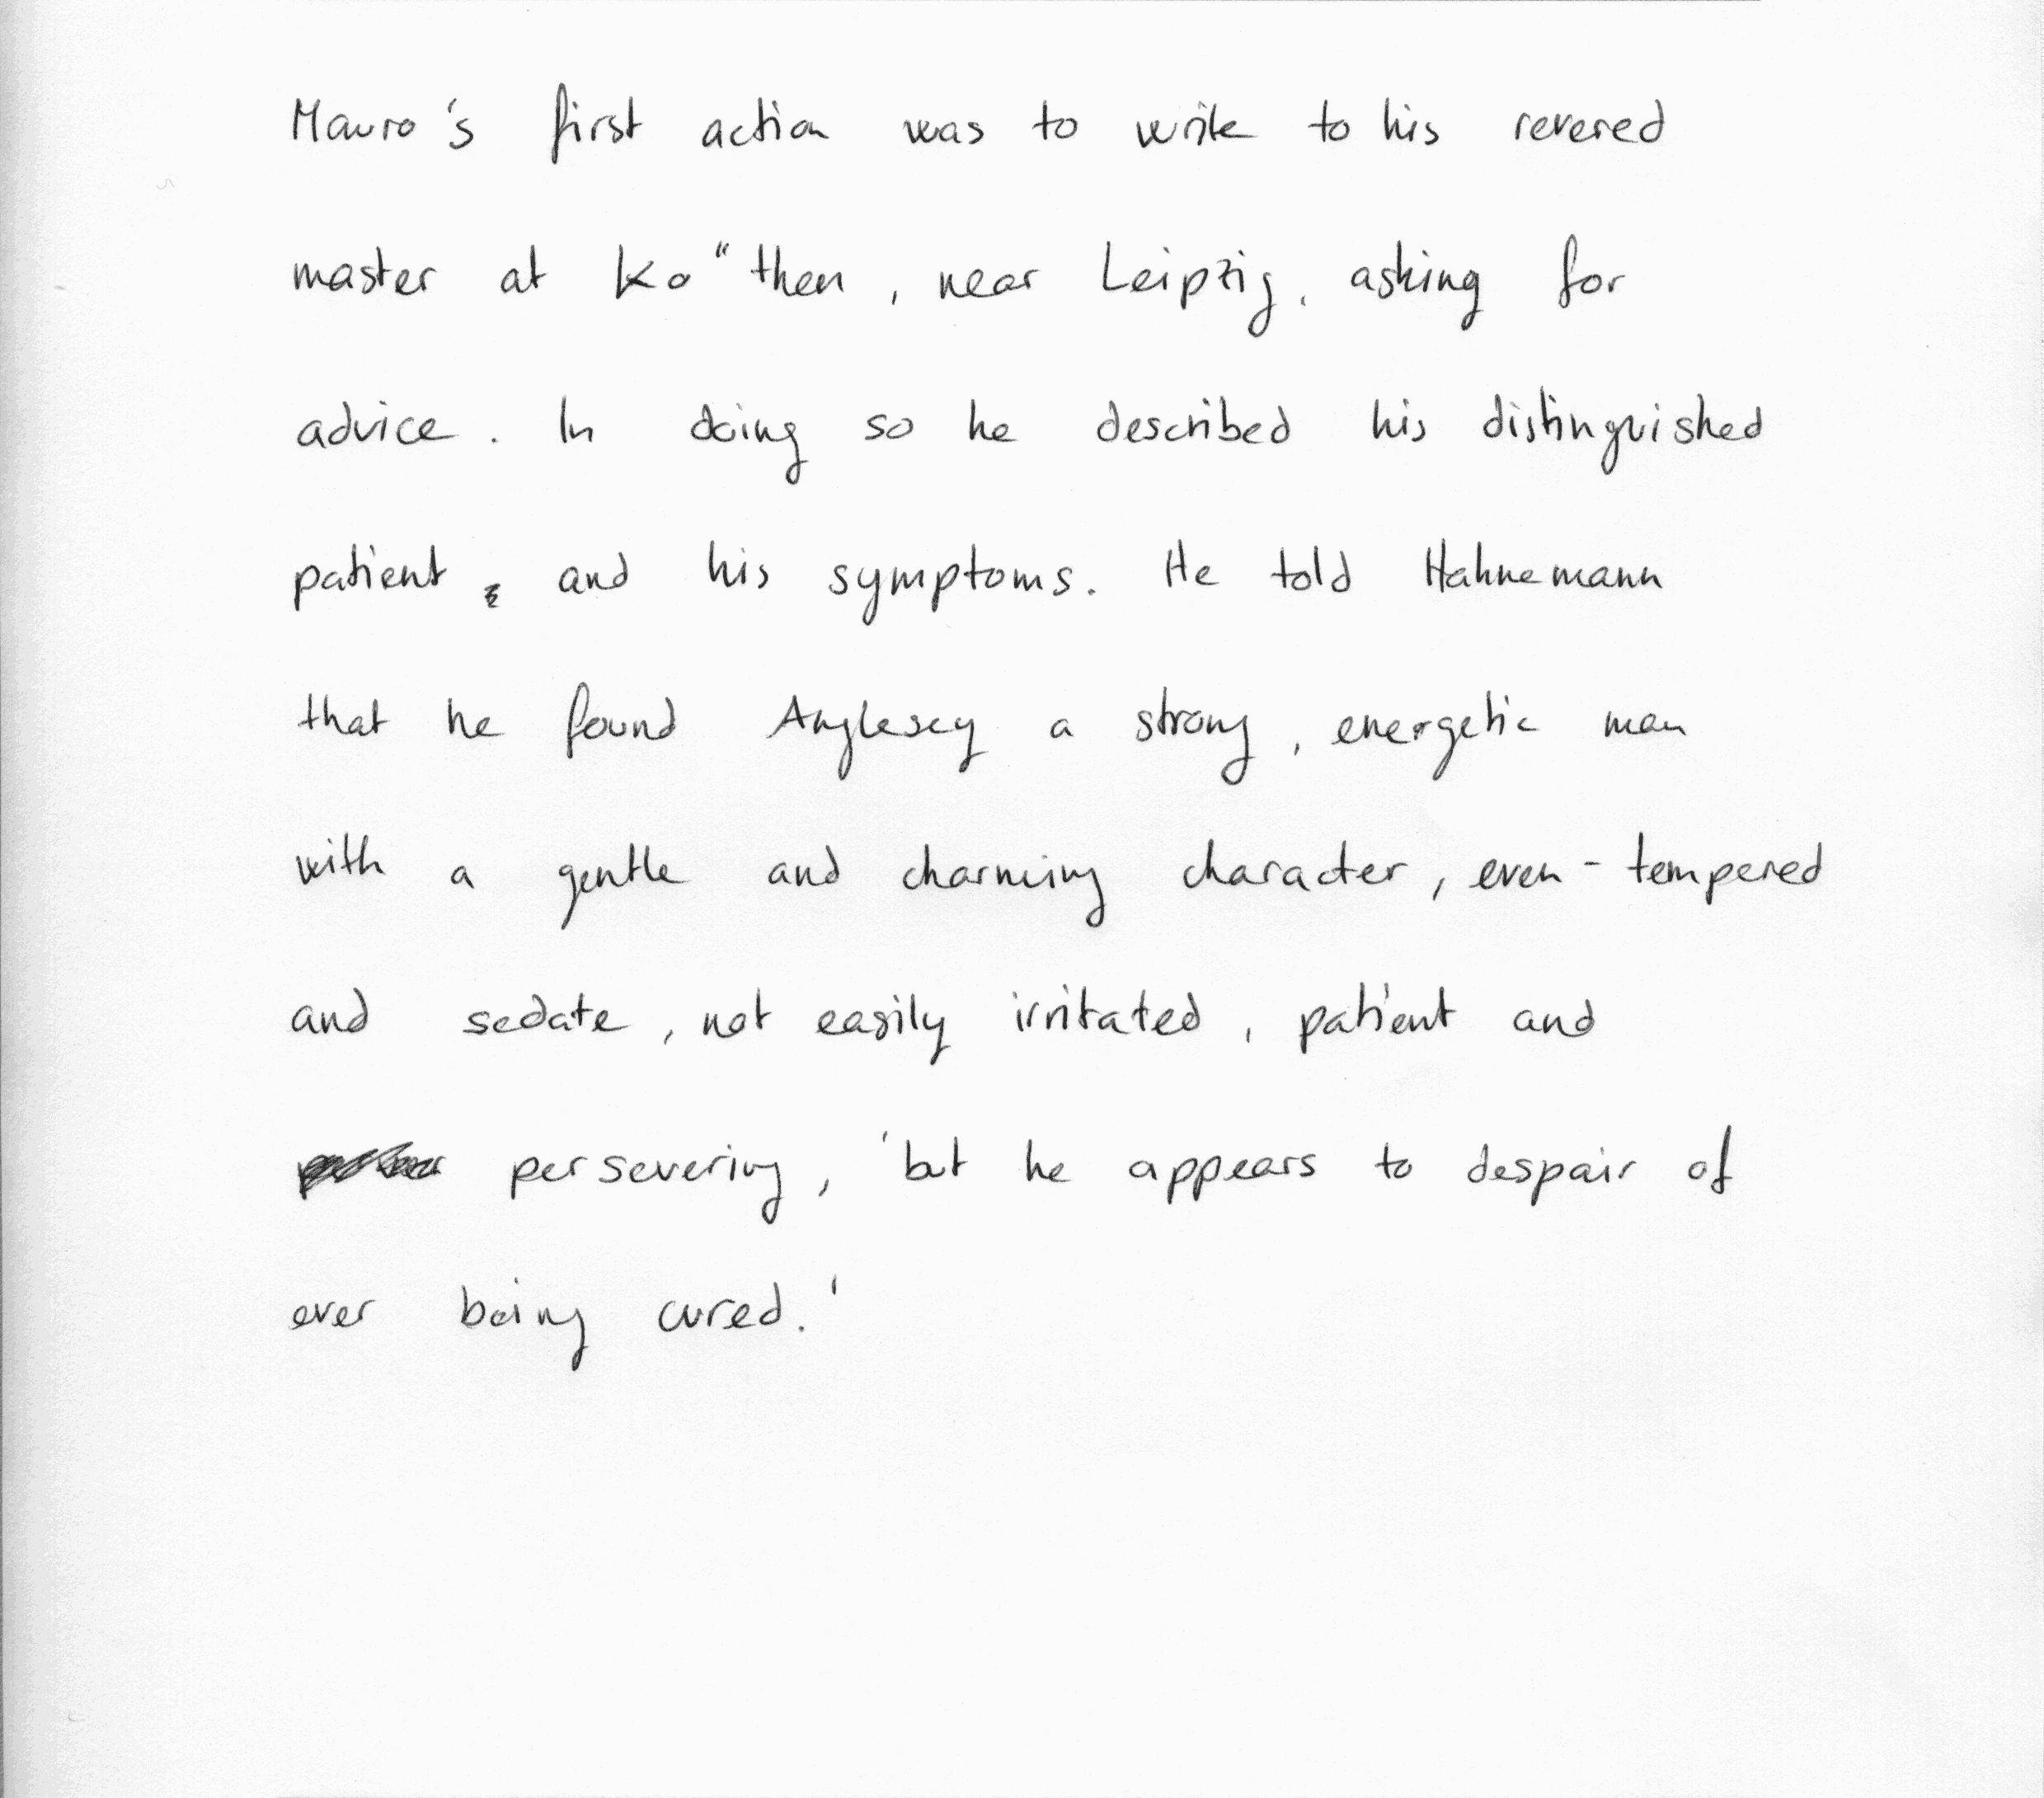 Mauro's first action was to write to his revered
master at Ko"then, near Leipzig, asking for
advice. In doing so he described his distinguished
patient and his symptoms. He told Hahnemann
that he found Anglesey a strong, energetic man
with a gentle and charming character, even-tempered
and sedate, not easily irritated, patient and
persevering, 'but he appears to despair of
ever being cured.'